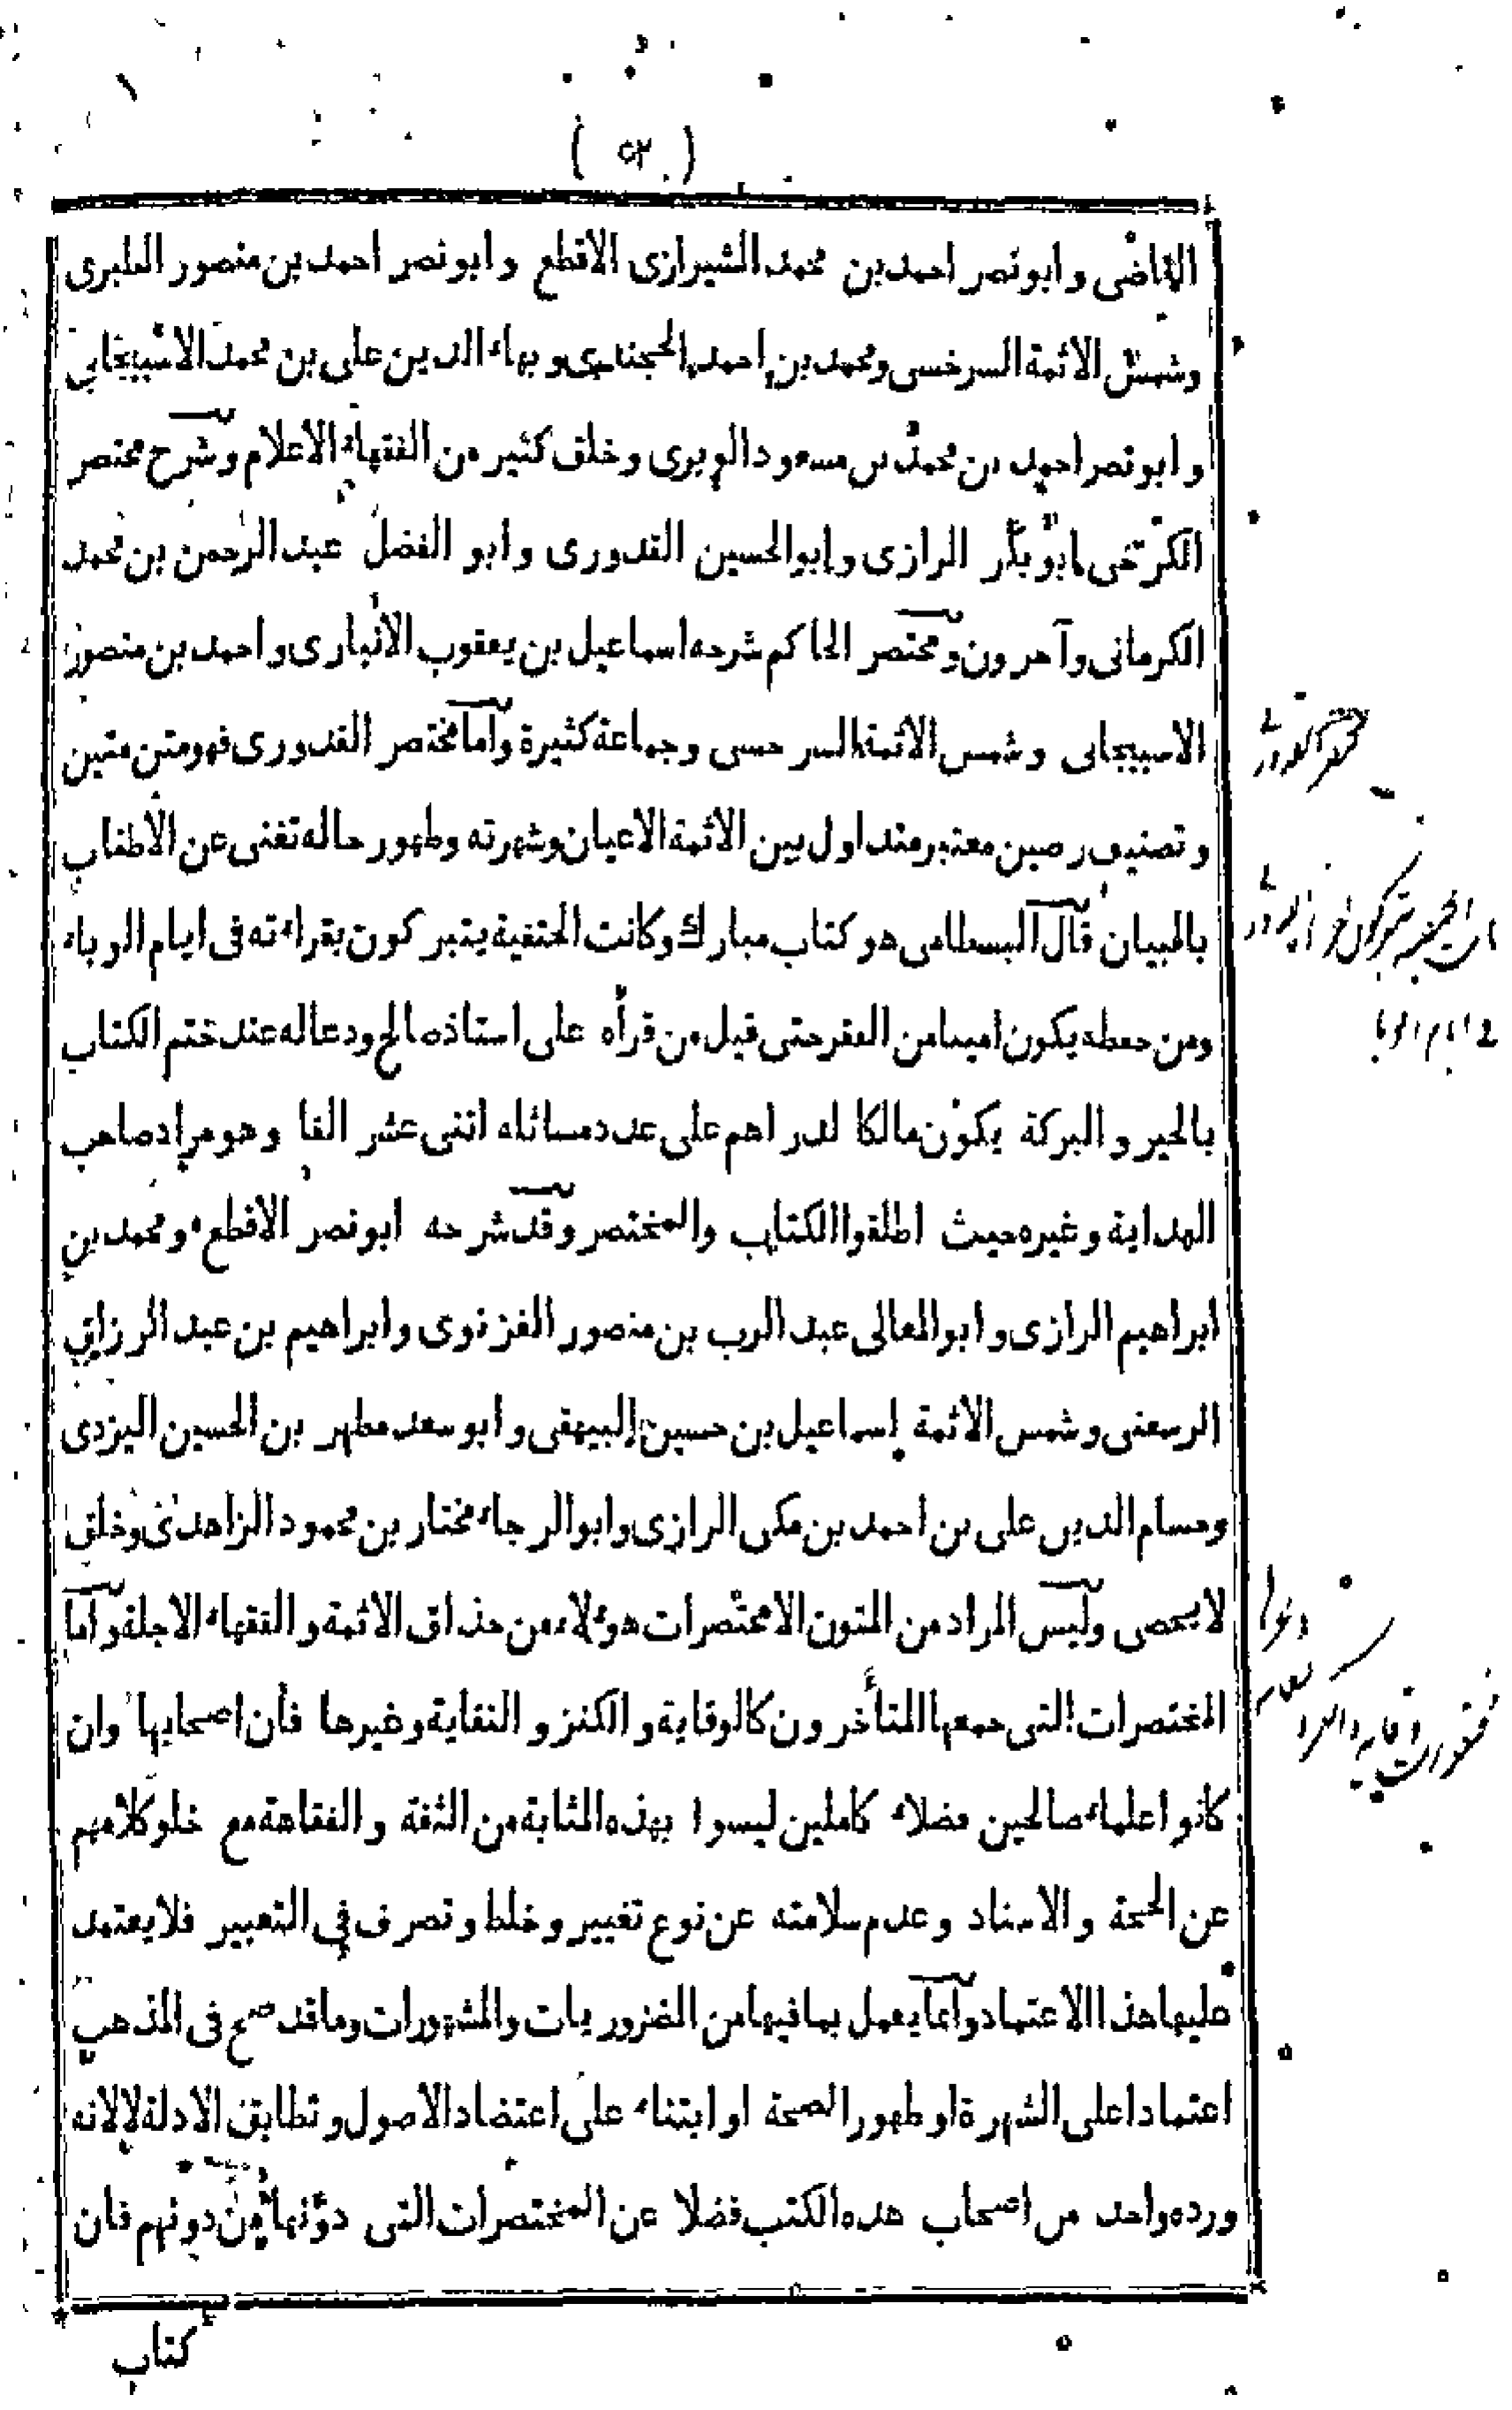 ( ٥٢ )
القاضى وابونصر احمدبن محمد الشيرازى الاقطع وابونصر احمدبن منصور الطبرى
وشمس الائمة السرخسى ومحمدبن احمد الخجندى وبهاء الدين على بن محمد الاسبيجابى
وابونصراحمد بن محمد بن مسعود الوبرى وخلق كثير من الفقهاء الاعلام وشرح مختصر
الكرخى ابوبكر الرازى وابوالحسين القدورى وابو الفضل عبدالرحمن بن محمد
الكرمانى وآخرون ومختصر الحاكم شرحه اسماعيل بن يعقوب الانبارى واحمد بن منصور
الاسبيجابى وشمس الائمة السرخسى وجماعة كثيرة واما مختصر القدورى فهو متن متين
وتصنيف رصين معتبر متداول بين الائمة الاعيان وشهرته وظهور حاله تغنى عن الاطناب
بالبيان قال البسطامى هو كتاب مبارك وكانت الحنفية يتبركون بقراءته فى ايام الوباء
ومن حفظه يكون امينا من الفقر حتى قيل من قرأه على استاذ صالح ودعاله عند ختم الكتاب
بالخير والبركة يكون مالكا لدراهم على عدد مسائله اثنى عشر الفا وهو مراد صاحب
الهداية وغيره حيث اطلقوا الكتاب والمختصر وقد شرحه ابونصر الاقطع ومحمد بن
ابراهيم الرازى وابوالمعالى عبد الرب بن منصور الغزنوى وابراهيم بن عبد الرزاق
الرسعنى وشمس الائمة إسماعيل بن حسين البيهقى وابو سعد مطهر بن الحسين اليزدى
وحسام الدين على بن احمد بن مكى الرازى وابوالرجاء مختار بن محمود الزاهدى وخلق
لايحصى وليس المراد من المتون الا مختصرات هؤلاء من حذاق الائمة والفقهاء الاجلة واما
المختصرات التى جمعها المتأخرون كالوقاية والكنز والنقاية وغيرها فأن اصحابها وان
كانوا علماء صالحين فضلاء كاملين ليسوا بهذه المثابة من الثقة والفقاهة مع خلو كلامهم
عن الحجة والاسناد وعدم سلامته عن نوع تغيير وخلط وتصرف فى التعبير فلا يعتمد
عليها هذا الاعتماد وانما يعمل بما فيها من الضروريات والمشهورات وما قد صح فى المذهب
اعتمادا على الشهرة او ظهور الصحة او ابتناء على اعتضاد الاصول وتطابق الادلة لا لانه
ورده واحد من اصحاب هذه الكتب فضلا عن المختصرات التى دونها من دونهم فان
كتاب